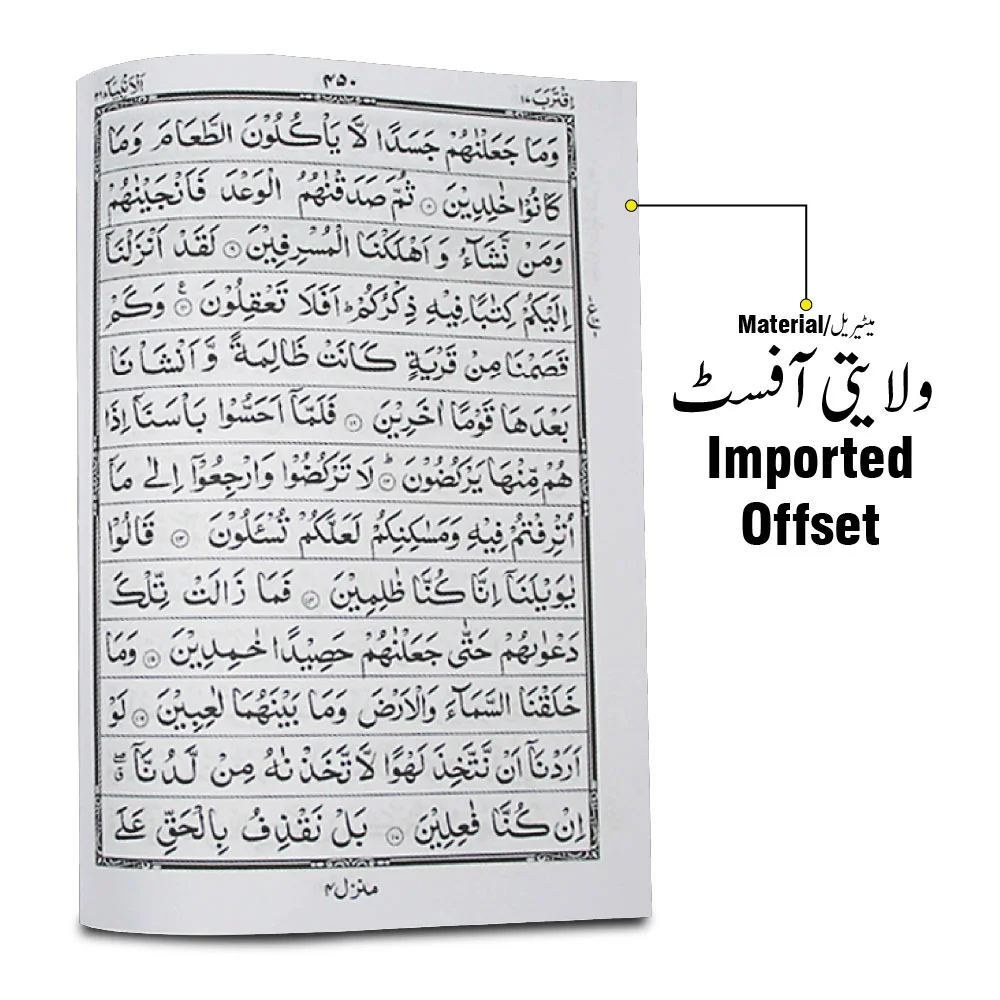 اِقْتَرَبَ ١٧
۴۵۰
اَلْاَنْۢبِیَآء ٢١
وَمَا جَعَلْنٰهُمْ جَسَدًا لَّا یَاْكُلُوْنَ الطَّعَامَ وَمَا
كَانُوْا خٰلِدِیْنَ ۸ ثُمَّ صَدَقْنٰهُمُ الْوَعْدَ فَاَنْجَیْنٰهُمْ
وَمَنْ نَّشَآءُ وَ اَهْلَكْنَا الْمُسْرِفِیْنَ ۹ لَقَدْ اَنْزَلْنَاۤ
اِلَیْكُمْ كِتٰبًا فِیْهِ ذِكْرُكُمْ ؕ اَفَلَا تَعْقِلُوْنَ ۱۰ وَكَمْ
قَصَمْنَا مِنْ قَرْیَةٍ كَانَتْ ظَالِمَةً وَّ اَنْشَاْنَا
بَعْدَهَا قَوْمًا اٰخَرِیْنَ ۱۱ فَلَمَّاۤ اَحَسُّوْا بَاْسَنَاۤ اِذَا
هُمْ مِّنْهَا یَرْكُضُوْنَ ؕ ۱۲ لَا تَرْكُضُوْا وَارْجِعُوْۤا اِلٰی مَاۤ
اُتْرِفْتُمْ فِیْهِ وَمَسٰكِنِكُمْ لَعَلَّكُمْ تُسْـَٔلُوْنَ ۱۳ قَالُوْا
یٰوَیْلَنَاۤ اِنَّا كُنَّا ظٰلِمِیْنَ ۱۴ فَمَا زَالَتْ تِّلْكَ
دَعْوٰىهُمْ حَتّٰی جَعَلْنٰهُمْ حَصِیْدًا خٰمِدِیْنَ ۱۵ وَمَا
خَلَقْنَا السَّمَآءَ وَالْاَرْضَ وَمَا بَیْنَهُمَا لٰعِبِیْنَ ۱۶ لَوْ
اَرَدْنَاۤ اَنْ نَّتَّخِذَ لَهْوًا لَّاتَّخَذْنٰهُ مِنْ لَّدُنَّاۤ ۖق
اِنْ كُنَّا فٰعِلِیْنَ ۱۷ بَلْ نَقْذِفُ بِالْحَقِّ عَلَی
منزل ۴
Material/میٹیریل
ولایتی آفسٹ
Imported
Offset